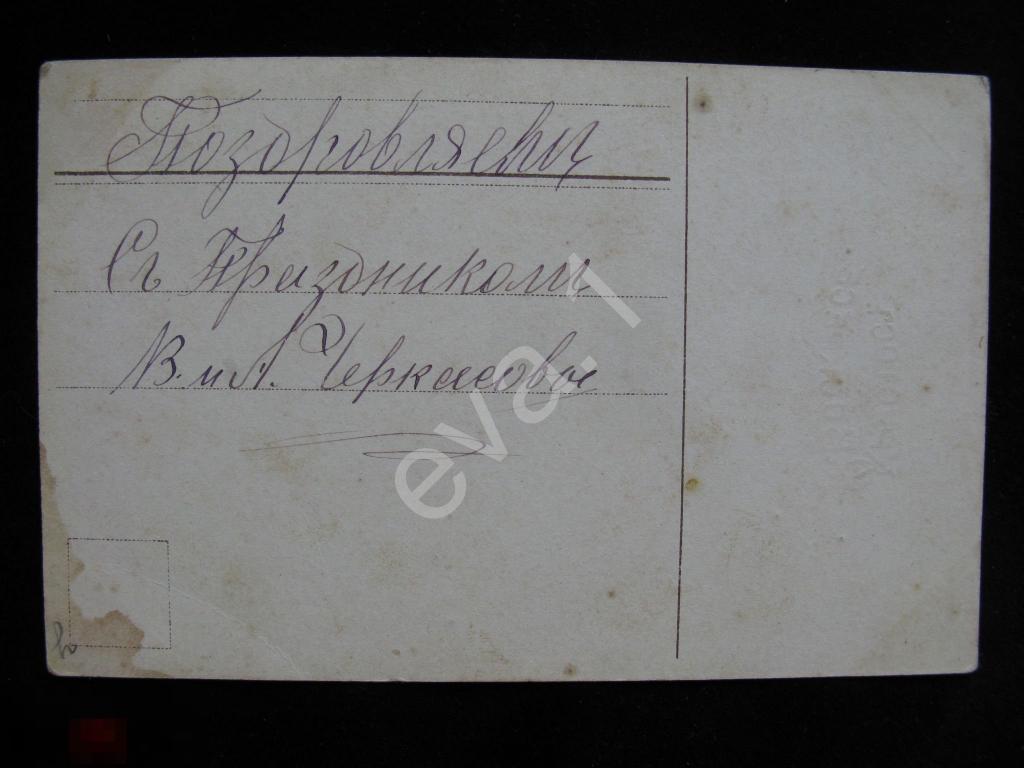 Поздровляемъ
Съ Праздникомъ
В. и А. Черкасовы
eva.1